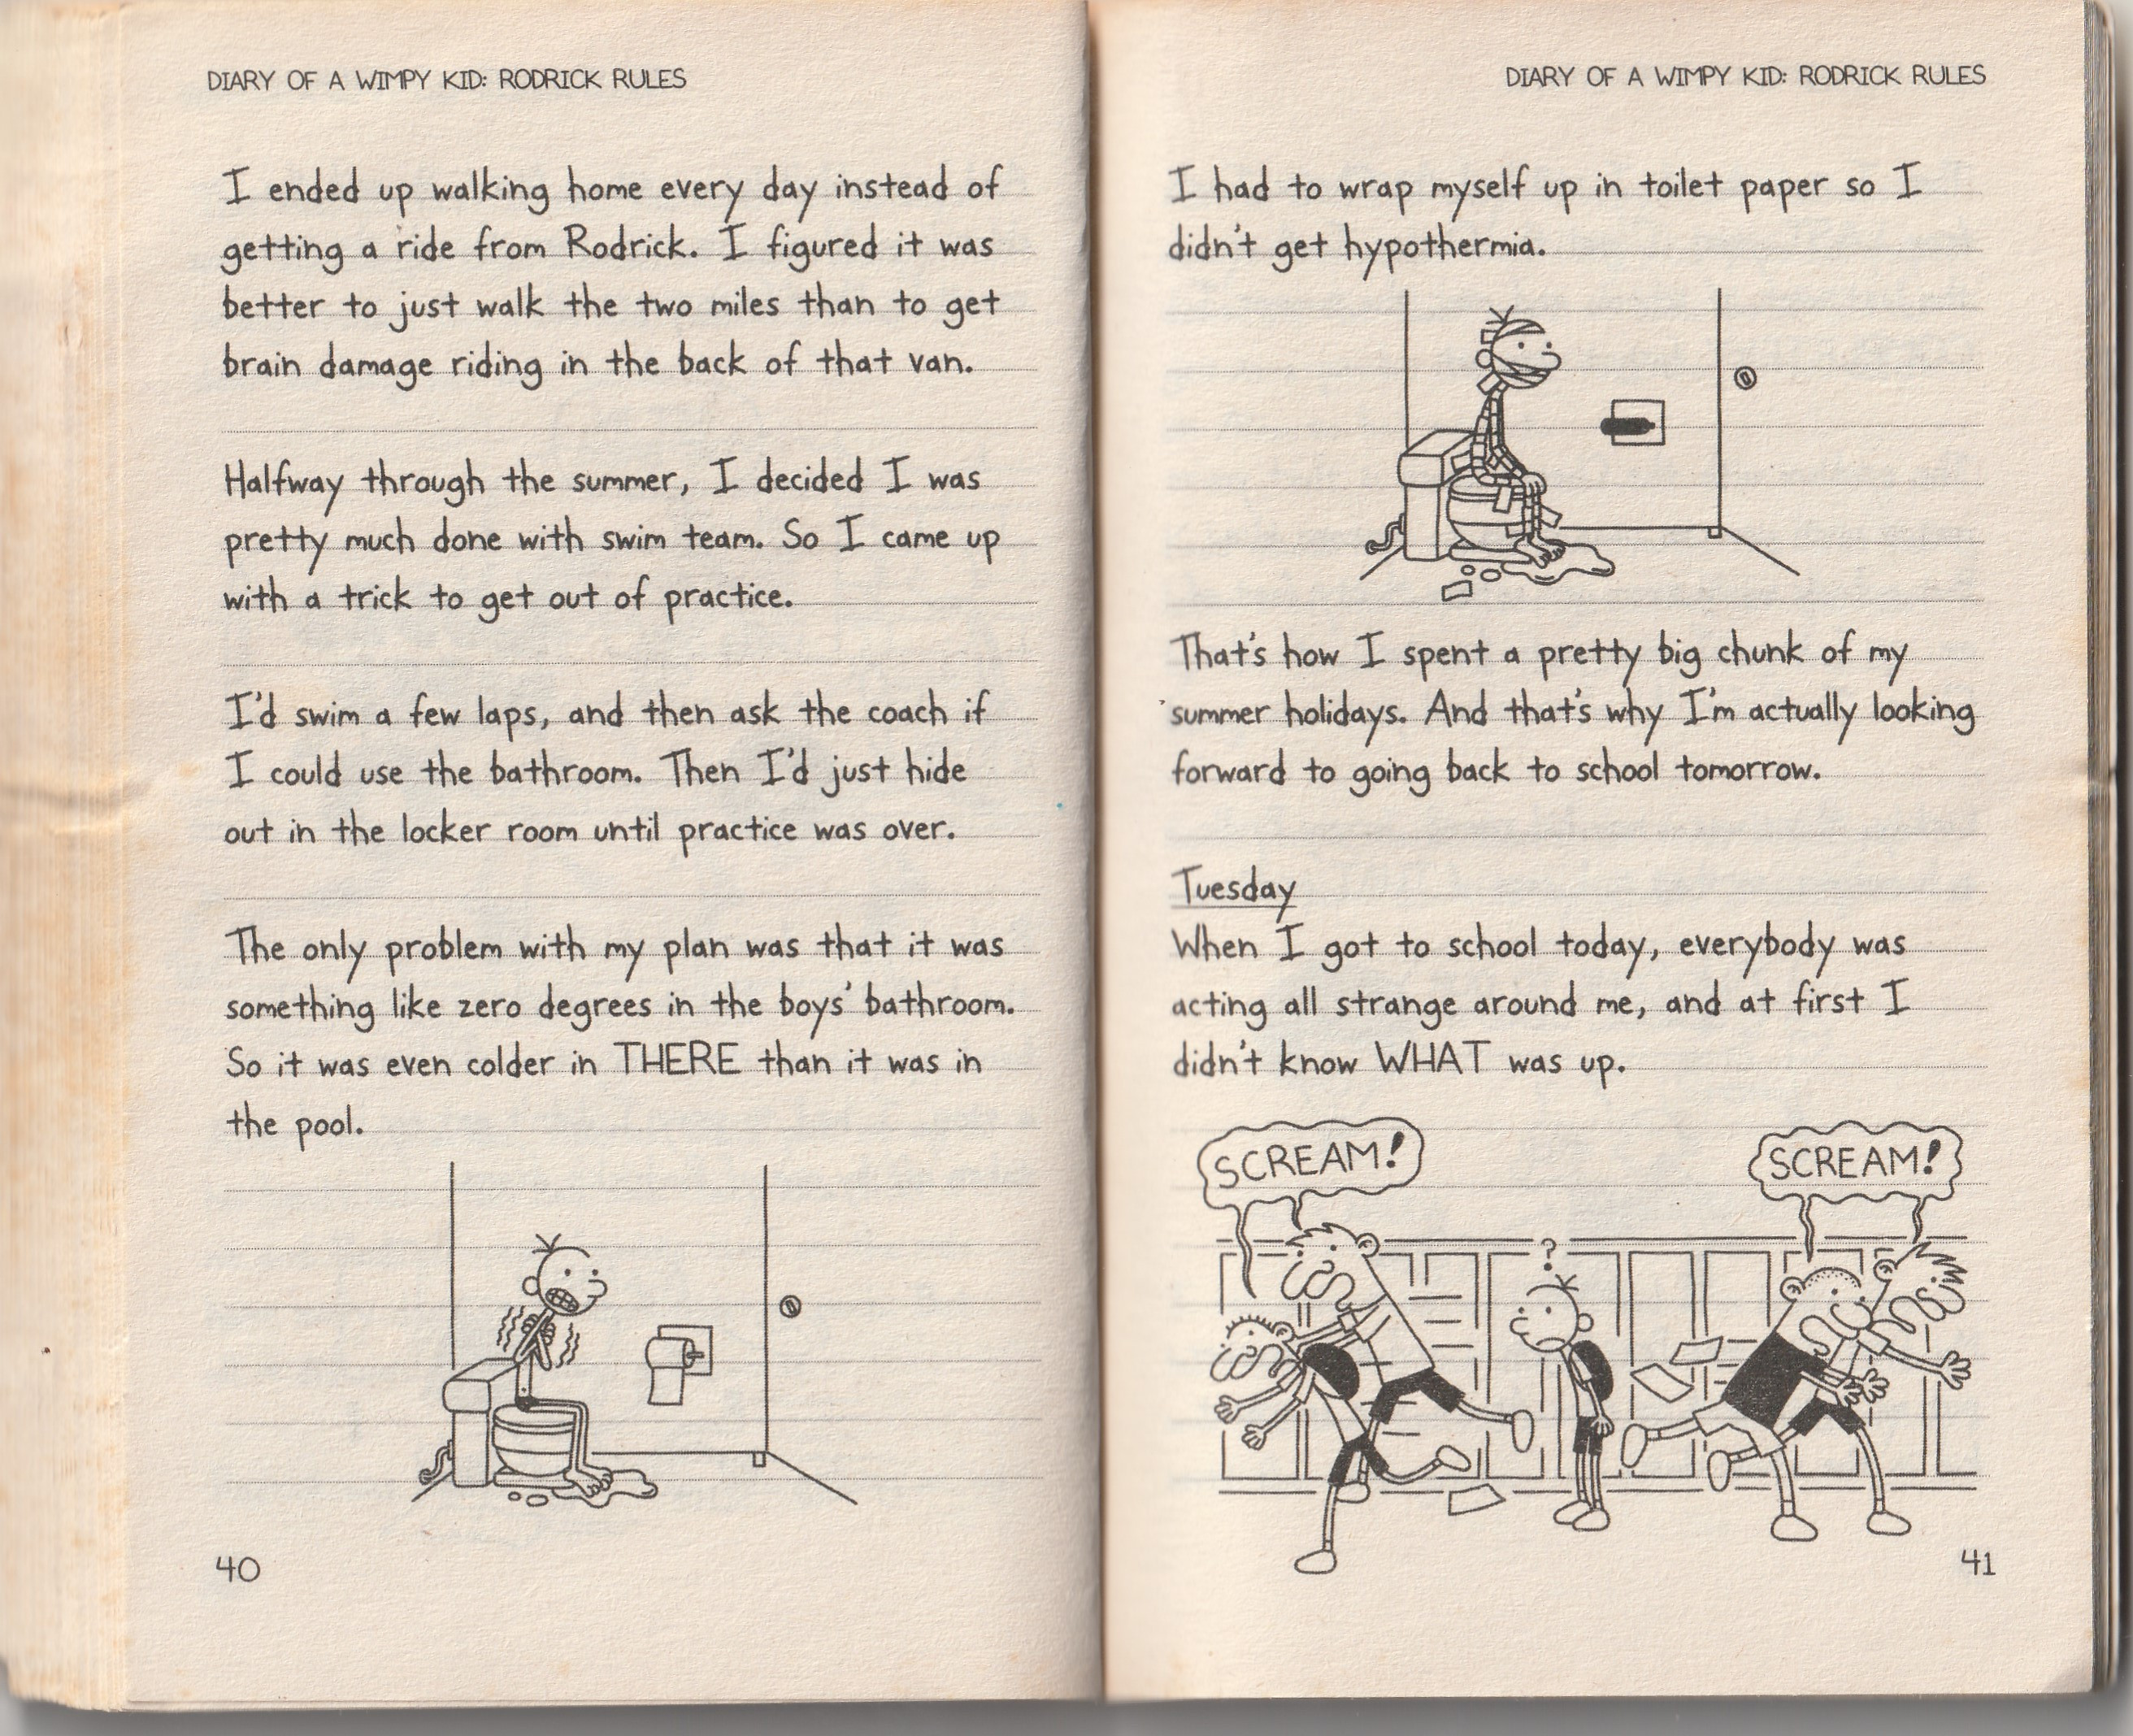 DIARY OF A WIMPY KID: RODRICK RULES
I ended up walking home every day instead of
getting a ride from Rodrick. I figured it was
better to just walk the two miles than to get
brain damage riding in the back of that van.
Halfway through the summer, I decided I was
pretty much done with swim team. So I came up
with a trick to get out of practice.
I'd swim a few laps, and then ask the coach if
I could use the bathroom. Then I'd just hide
out in the locker room until practice was over.
The only problem with my plan was that it was
something like zero degrees in the boys' bathroom.
So it was even colder in THERE than it was in
the pool.
40
DIARY OF A WIMPY KID: RODRICK RULES
I had to wrap myself up in toilet paper so I
didn't get hypothermia.
That's how I spent a pretty big chunk of my
summer holidays. And that's why I'm actually looking
forward to going back to school tomorrow.
Tuesday
When I got to school today, everybody was
acting all strange around me, and at first I
didn't know WHAT was up.
SCREAM!
SCREAM!
?
41